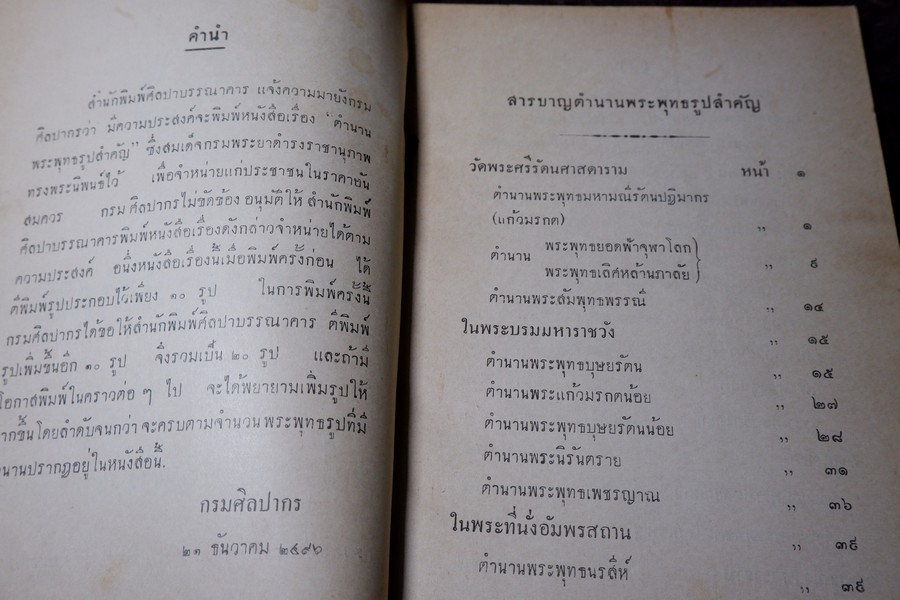 คำนำ
สำนักพิมพ์ศิลปาบรรณาคาร แจ้งความมายังกรม
ศิลปากรว่า มีความประสงค์จะพิมพ์หนังสือเรื่อง "ตำนาน
พระพุทธรูปสำคัญ" ซึ่งสมเด็จกรมพระยาดำรงราชานุภาพ
ทรงพระนิพนธ์ไว้ เพื่อจำหน่ายแก่ประชาชนในราคาอัน
สมควร กรมศิลปากรไม่ขัดข้อง อนุมัติให้ สำนักพิมพ์
ศิลปาบรรณาคารพิมพ์หนังสือเรื่องดังกล่าวจำหน่ายได้ตาม
ความประสงค์ อนึ่งหนังสือเรื่องนี้เมื่อพิมพ์ครั้งก่อน ได้
ตีพิมพ์รูปประกอบไว้เพียง ๑๐ รูป ในการพิมพ์ครั้งนี้
กรมศิลปากรได้ขอให้สำนักพิมพ์ศิลปาบรรณาคาร ตีพิมพ์
รูปเพิ่มขึ้นอีก ๑๐ รูป จึงรวมเป็น ๒๐ รูป และถ้ามี
โอกาสพิมพ์ในคราวต่อ ๆ ไป จะได้พยายามเพิ่มรูปให้
ากขึ้นโดยลำดับจนกว่า จะครบตามจำนวน พระพุทธรูปที่มี
นานปรากฏอยู่ในหนังสือนี้.
กรมศิลปากร
๒๑ ธันวาคม ๒๔๙๖
สารบาญตำนานพระพุทธรูปสำคัญ
วัดพระศรีรัตนศาสดาราม หน้า ๑
ตำนานพระพุทธมหามณีรัตนปฏิมากร
(แก้วมรกต) ,, ๑
ตำนาน พระพุทธยอดฟ้าจุฬาโลก
พระพุทธเลิศหล้านภาลัย ,, ๙
ตำนานพระสัมพุทธพรรณี ,, ๑๔
ในพระบรมมหาราชวัง ,, ๑๕
ตำนานพระพุทธบุษยรัตน ,, ๑๕
ตำนานพระแก้วมรกตน้อย ,, ๒๗
ตำนานพระพุทธบุษยรัตนน้อย ,, ๒๘
ตำนานพระนิรันตราย ,, ๓๑
ตำนานพระพุทธเพชรญาณ ,, ๓๖
ในพระที่นั่งอัมพรสถาน ,, ๓๙
ตำนานพระพุทธนรสีห์ ,, ๓๙